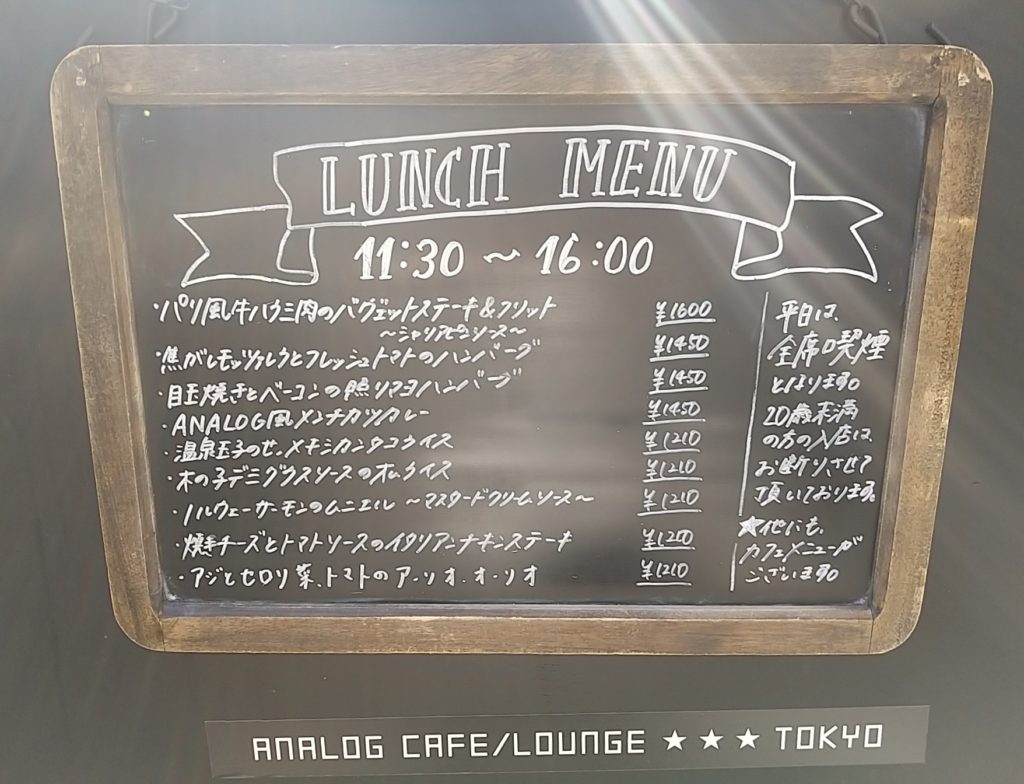 LUNCH MENU
11:30 ～ 16:00
・パリ風牛ハラミ肉のバヴェットステーキ&フリット ¥1600
～シャリアピンソース～
・焦がしモッツァレラとフレッシュトマトのハンバーグ ¥1450
・目玉焼きとベーコンの照りマヨハンバーグ ¥1450
・ANALOG風メンチカツカレー ¥1450
・温泉玉子のせ、メキシカンタコライス ¥1210
・木の子デミグラスソースのオムライス ¥1210
・ノルウェーサーモンのムニエル ～マスタードクリームソース～ ¥1210
・焼きチーズとトマトソースのイタリアンチキンステーキ ¥1200
・アジとセロリ菜、トマトのアーリオ・オーリオ ¥1210
平日は、
全席喫煙
となります。
20歳未満
の方の入店は、
お断りさせて
頂いております。
★他にも、
カフェメニューが
ございます。
ANALOG CAFE/LOUNGE ★ ★ ★ TOKYO